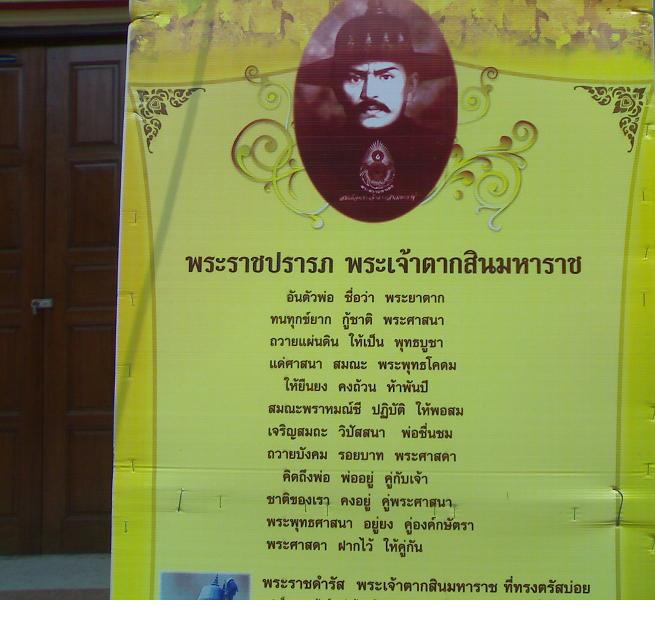 พระราชปรารภ พระเจ้าตากสินมหาราช
อันตัวพ่อ ชื่อว่า พระยาตาก
ทนทุกข์ยาก กู้ชาติ พระศาสนา
ถวายแผ่นดิน ให้เป็น พุทธบูชา
แด่ศาสนา สมณะ พระพุทธโคดม
ให้ยืนยง คงถ้วน ห้าพันปี
สมณะพราหมณ์ชี ปฏิบัติ ให้พอสม
เจริญสมถะ วิปัสสนา พ่อชื่นชม
ถวายบังคม รอยบาท พระศาสดา
คิดถึงพ่อ พ่ออยู่ คู่กับเจ้า
ชาติของเรา คงอยู่ คู่พระศาสนา
พระพุทธศาสนา อยู่ยง คู่องค์กษัตรา
พระศาสดา ฝากไว้ ให้คู่กัน
พระราชดำรัส พระเจ้าตากสินมหาราช ที่ทรงตรัสบ่อย